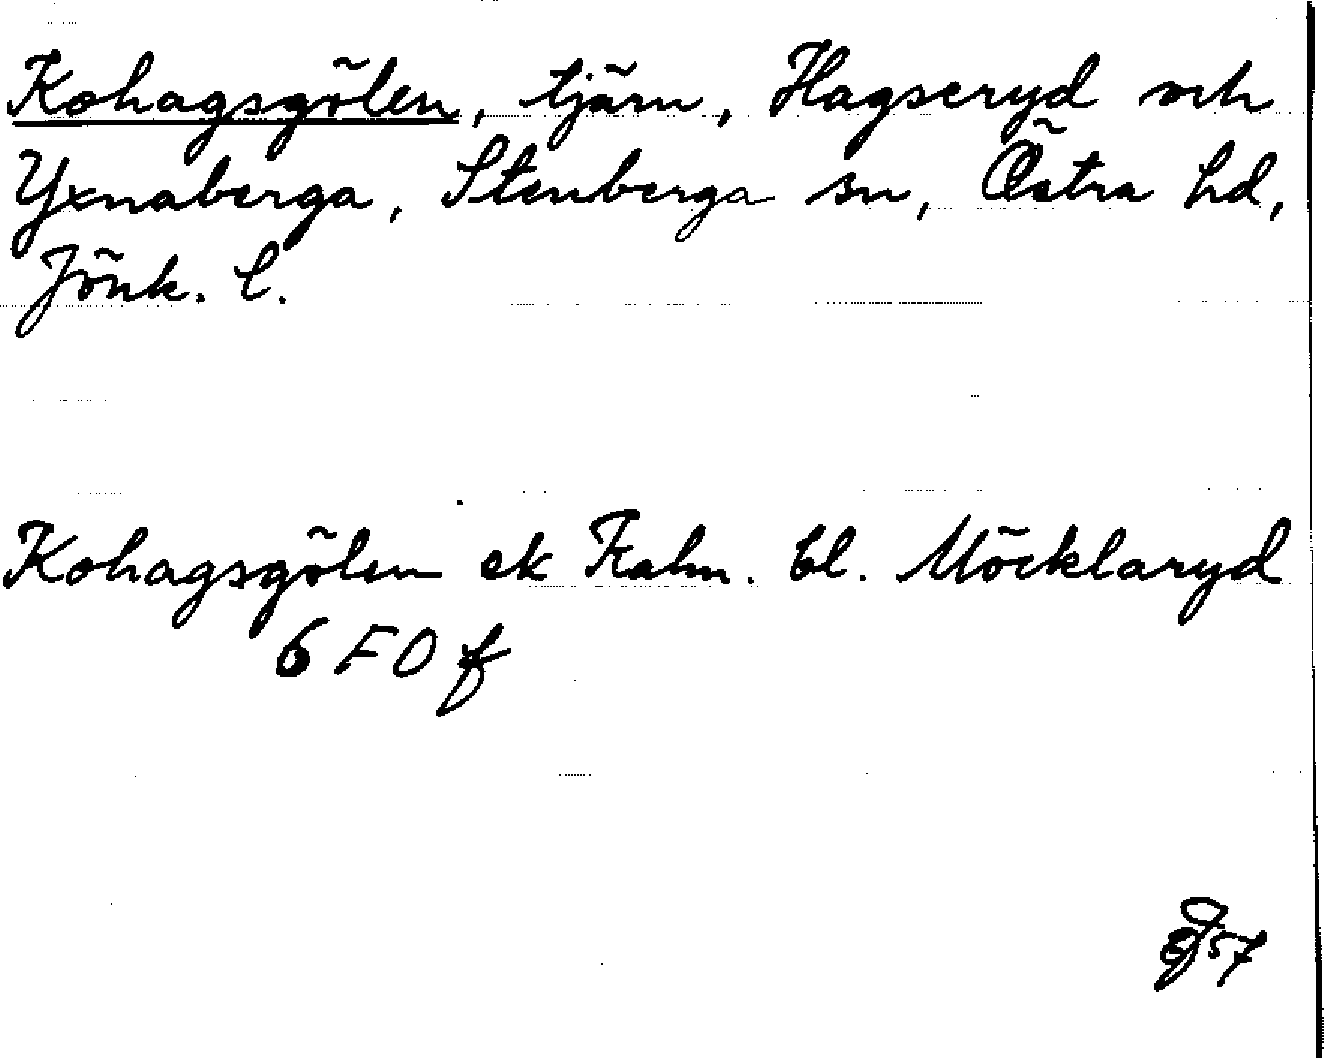 Kohagsgölen, tjärn, Hagseryd och
Yxnaberga, Stenberga sn, Östra hd,
Jönk. l.
Kohagsgölen ek Kalm. bl. Möcklaryd
6 F 0 f
57